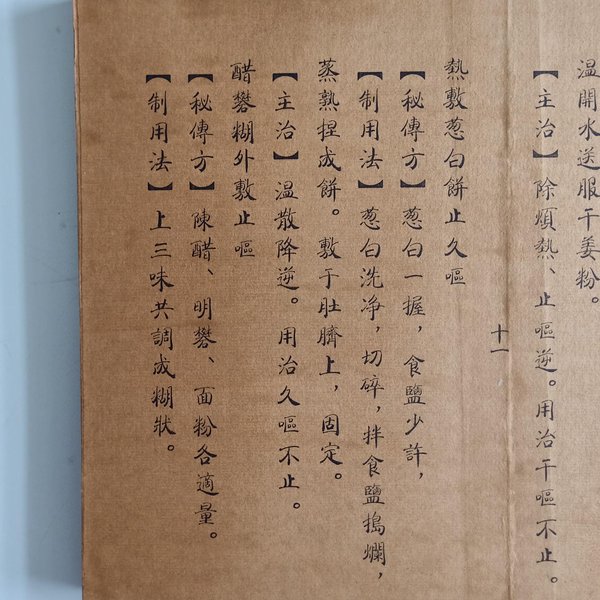 温開水送服干姜粉。
【主治】除煩熱、止嘔逆。用治干嘔不止。
十一
熱敷葱白餅止久嘔
【秘傳方】葱白一握，食鹽少許，
【制用法】葱白洗净，切碎，拌食鹽搗爛，
蒸熱捏成餅。敷于肚臍上，固定。
【主治】温散降逆。用治久嘔不止。
醋礬糊外敷止嘔
【秘傳方】陳醋、明礬、面粉各適量。
【制用法】上三味共調成糊狀。